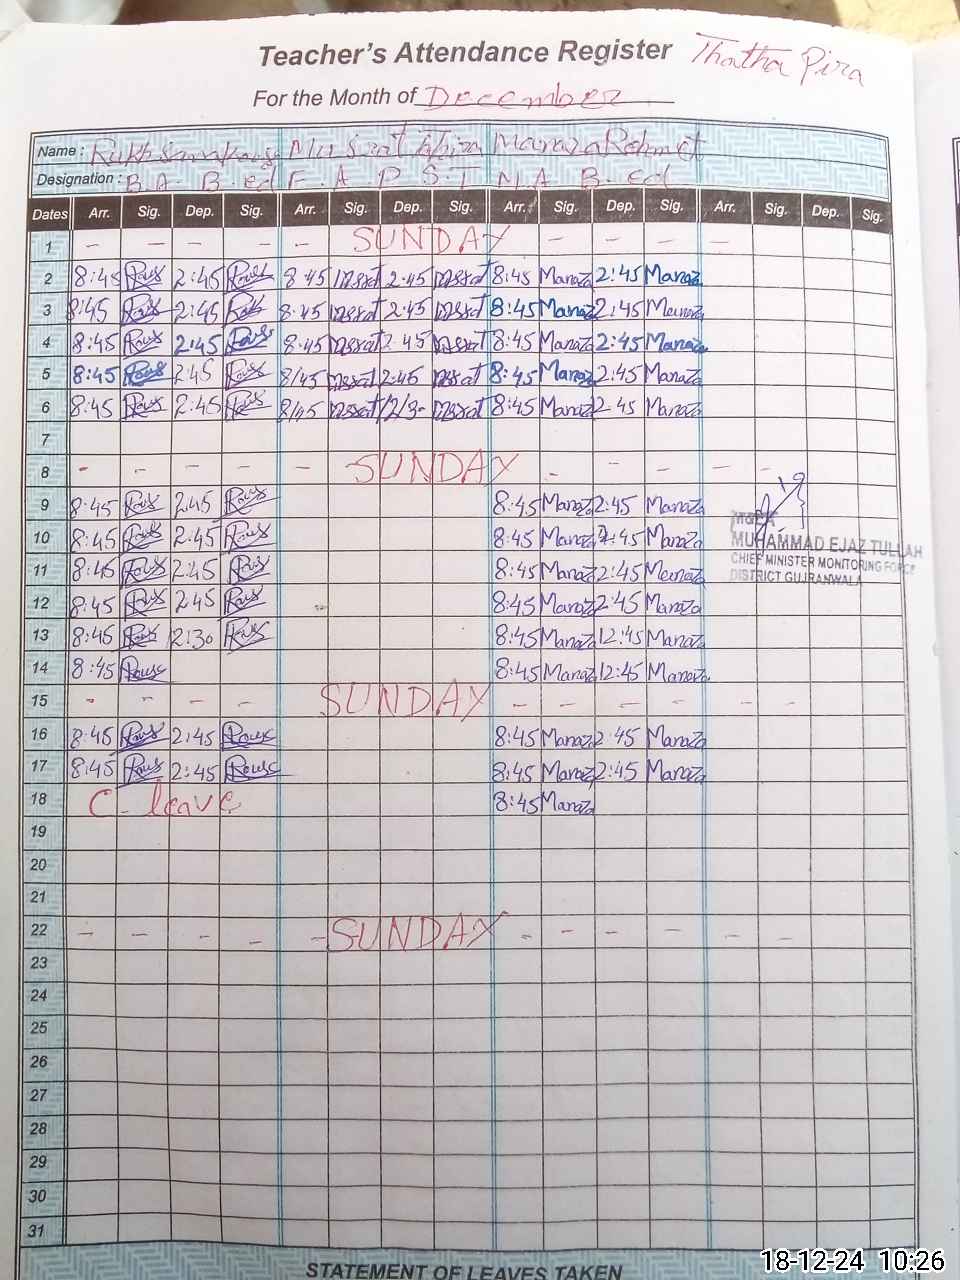 Teacher's Attendance Register Thatha Pira
For the Month of December
Name : Mussrat Tahira Manaza Rehmat
Designation : B.A B.ed F.A P.S.T M.A B.Ed
Dates Arr. Sig. Dep. Sig. Arr. Sig. Dep. Sig. Arr. Sig. Dep. Sig. Arr. Sig. Dep. Sig.
1 - - - - - SUNDAY - - - -
2 8:45 2:45 8:45 2:45 8:45 Manaza 2:45 Manaza
3 8:45 2:45 8:45 2:45 8:45 Manaza 2:45 Manaza
4 8:45 2:45 8:45 2:45 8:45 Manaza 2:45 Manaza
5 8:45 2:45 8/45 2:45 8:45 Manaza 2:45 Manaza
6 8:45 2:45 8/45 12/3- 8:45 Manaza 2:45 Manaza
7
8 - - - - - SUNDAY - - - - -
9 8:45 2:45 8:45 Manaza 2:45 Manaza
10 8:45 2:45 8:45 Manaza 2:45 Manaza
MUHAMMAD EJAZ TULLAH
11 8:45 2:45 8:45 Manaza 2:45 Manaza
CHIEF MINISTER MONITORING FORCE
DISTRICT GUJRANWALA
12 8:45 2:45 8:45 Manaza 2:45 Manaza
13 8:45 12:30 8:45 Manaza 12:45 Manaza
14 8:45 8:45 Manaza 12:45 Manaza
15 - - - - SUNDAY - - - - - -
16 8:45 2:45 8:45 Manaza 2:45 Manaza
17 8:45 2:45 8:45 Manaza 2:45 Manaza
18 C. leave 8:45 Manaza
19
20
21
22 - - - - - SUNDAY - - - - - -
23
24
25
26
27
28
29
30
31
STATEMENT OF LEAVES TAKEN
18-12-24 10:26